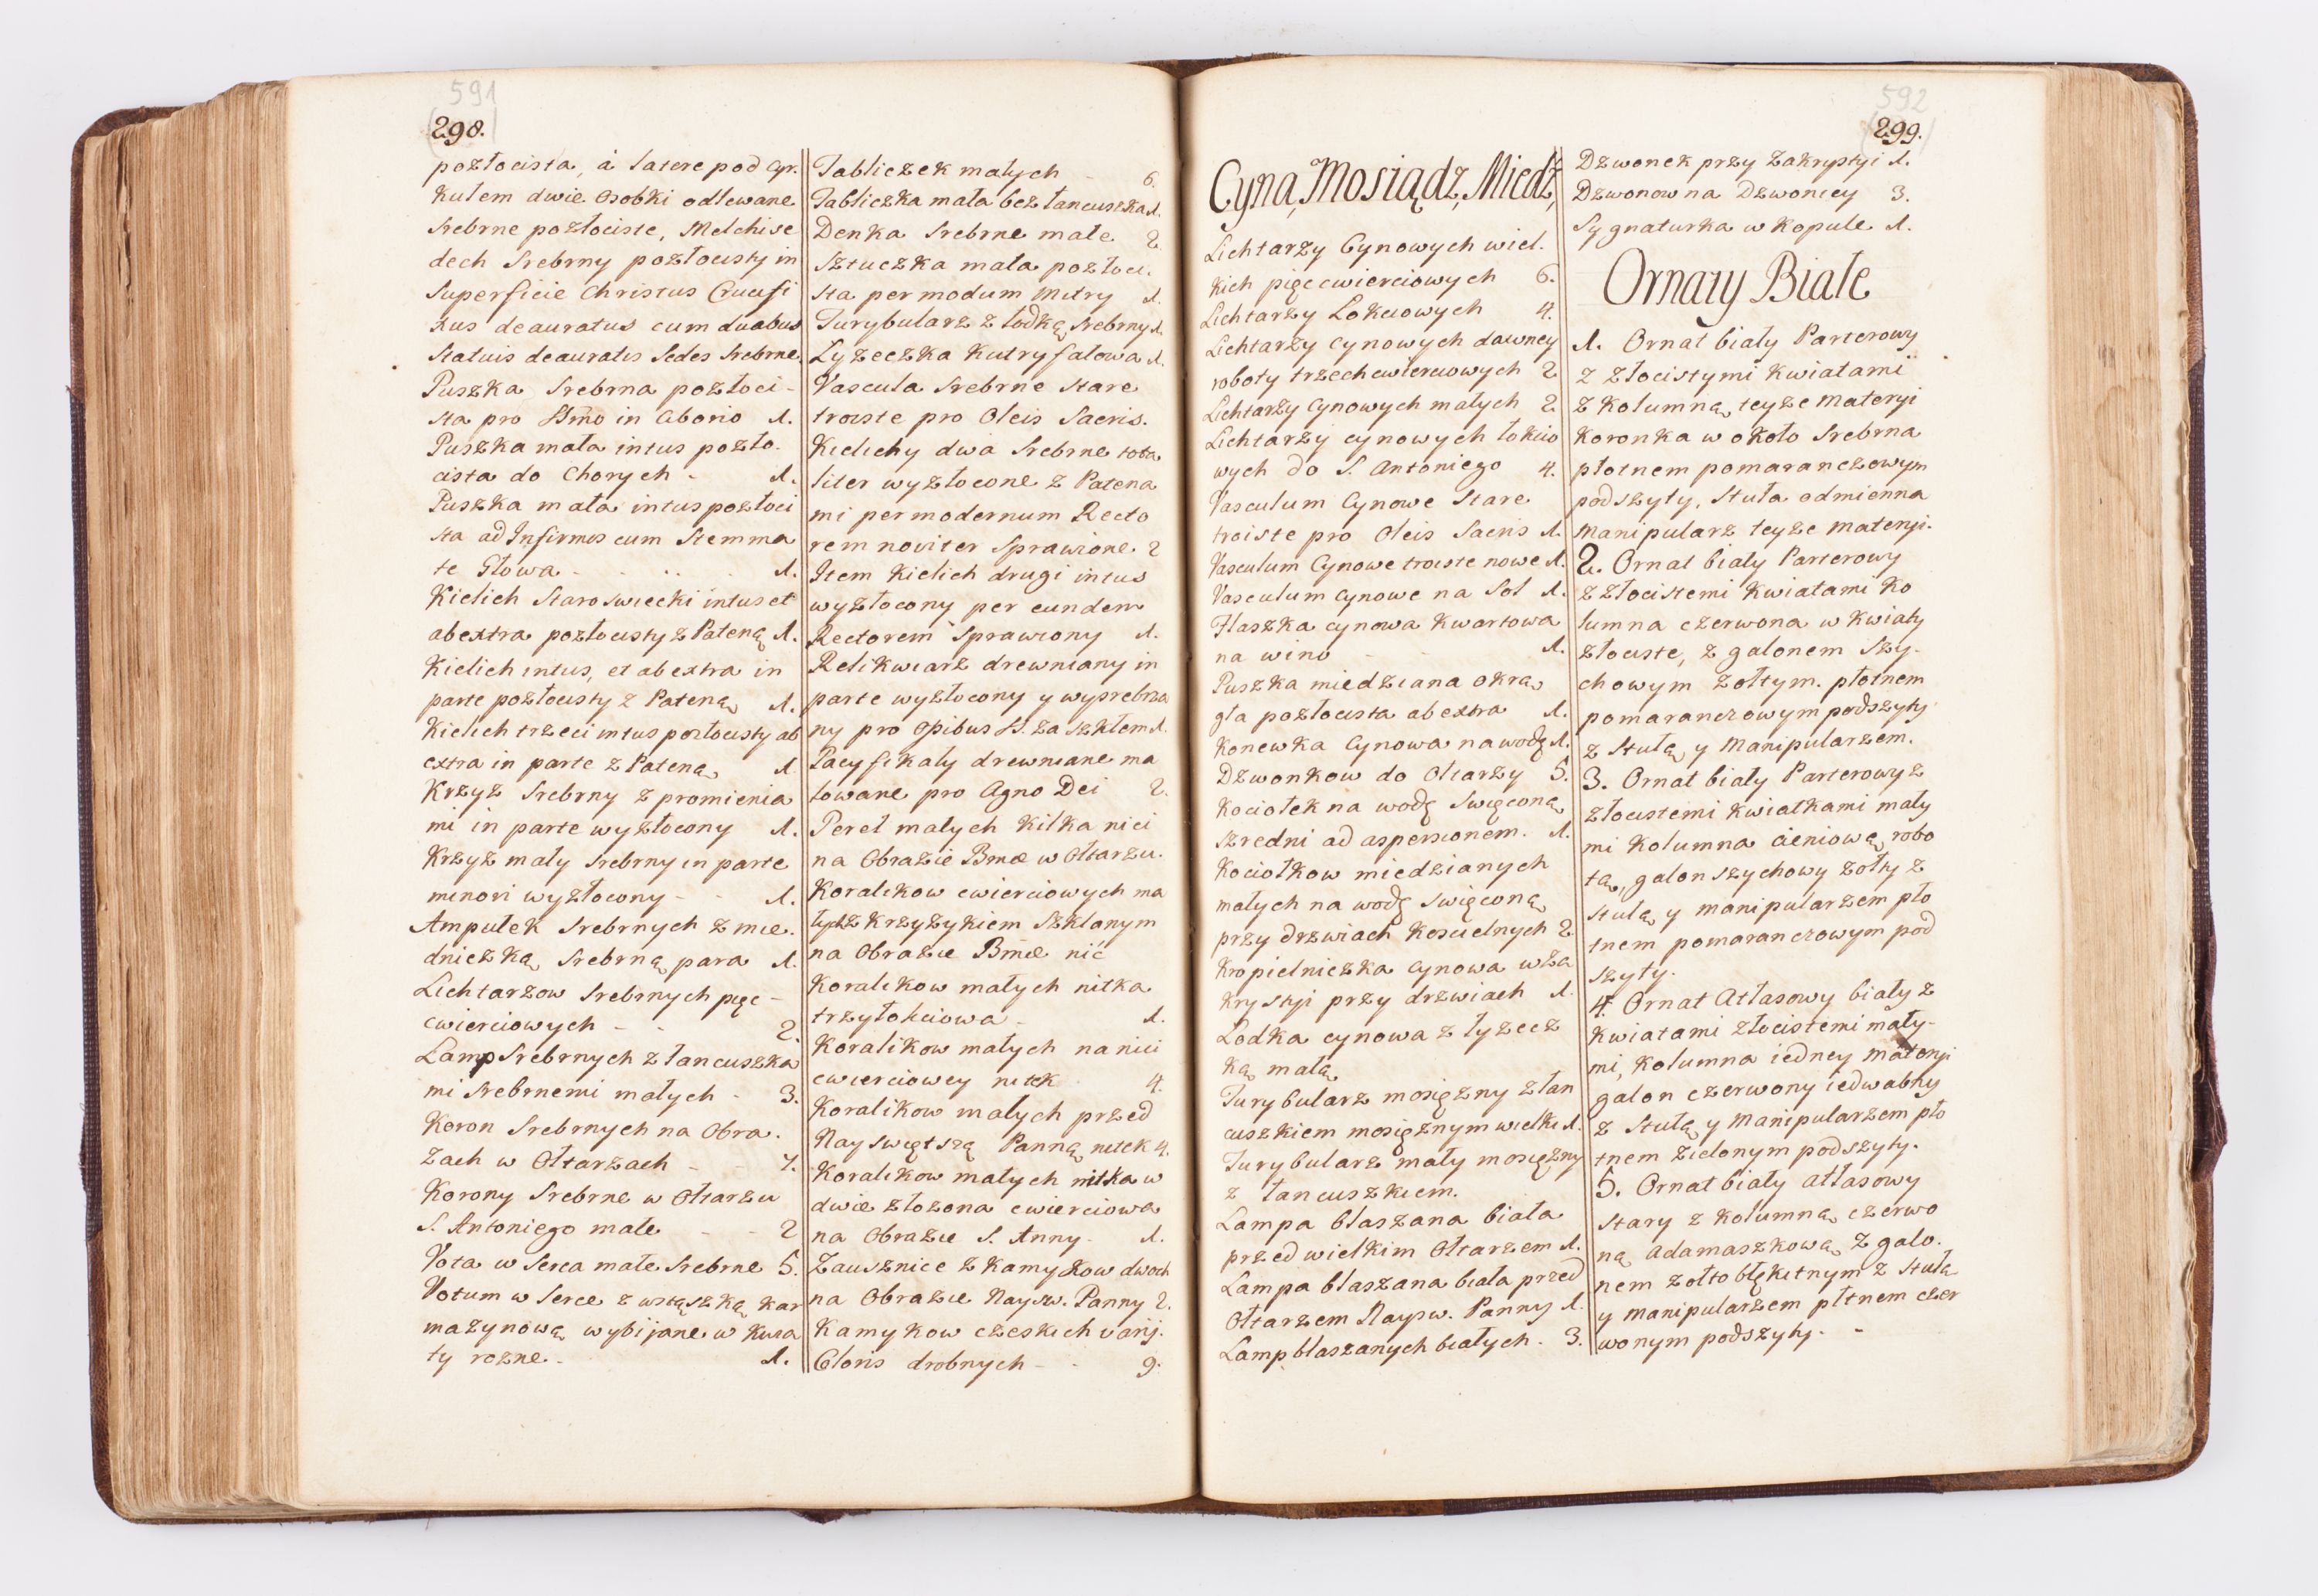 591
298.
pozłocista, à latere pod cyr.
kułem dwie osobki odlewane
srebrne pozłociste, Melchise
dech srebrny pozłocisty in
superficie Christus Crucifi
xus deauratus cum duabus
statuis deauratis sedes srebrne.
Puszka srebrna pozłoci-
sta pro SSmo in Ciborio 1.
Puszka mała intus pozło.
cista do Chorych - 1.
Puszka mała intus pozłoci
sta ad Infirmos cum Stemma
te Głowa - 1.
Kielich staroswiecki intus et
ab extra pozłocisty z Pateną 1.
Kielich intus, et ab extra in
parte pozłocisty z Pateną 1.
Kielich trzeci intus pozłocisty ab
extra in parte z Pateną 1
Krzyz srebrny z promienia
mi in parte wyzłocony 1.
Krzyz mały srebrny in parte
minori wyzłocony - - 1.
Ampułek srebrnych z mie.
dnieżką srebrną para 1.
Lichtarzow srebrnych pięc -
cwierciowych - - 2.
Lamp srebrnych z łancuszka
mi srebrnemi małych - 3.
Koron srebrnych na Obra.
zach w Ołtarzach - - 7.
Korony srebrne w Ołtarzu
S. Antoniego małe - - 2
Vota w serca małe srebrne 5.
Votum w serce z wstąszką kar
mazynową wybijane w kwia
ty rozne - 1.
Tabliczek małych - 6.
Tabliczka mała bez łancuszka 1.
Denka srebrne małe 2.
Sztuczka mała pozłoci.
sta per modum mitry 1.
Turybularz z łodką srebrny 1.
Łyzeczka kutryfałowa 1.
Vascula srebrne stare
troiste pro Oleis Sacris.
Kielichy dwa srebrne tota
liter wyzłocone z Patena
mi per modernum Recto
rem noviter sprawione 2
Item Kielich drugi intus
wyzłocony per eundem
Rectorem sprawiony 1.
Relikwiarz drewniany in
parte wyzłocony y wysrebrza
ny pro Opibus SS. za szkłem 1.
Pacyfikały drewniane ma
lowane pro Agno Dei 2.
Pereł małych kilka nici
na Obrazie Bmæ w Ołtarzu.
Koralikow cwierciowych ma
łych z krzyzykiem szklanym
na Obrazie Bmæ nić
Koralikow małych nitka
trzyłokciowa - 1.
Koralikow małych na nici
cwierciowey nitek 4.
Koralikow małych przed
Nayswiętszą Panną nitek 4.
Koralikow małych nitka w
dwie złozona cwierciowa
na Obrazie S. Anny - 1.
Zausznice z kamykow dwoch
na Obrazie Naysw. Panny 2.
Kamykow czeskich varij.
Coloris drobnych - - 9.
592
299.
Cyna, Mosiądz, Miedź,
Lichtarzy Cynowych wiel.
kich pięc cwierciowych 6.
Lichtarzy Łokciowych 4.
Lichtarzy cynowych dawney
roboty trzech cwierciowych 2
Lichtarzy Cynowych małych 2.
Lichtarzy cynowych łokcio
wych do S. Antoniego 4.
Vasculum Cynowe stare
troiste pro Oleis Sacris 1.
Vasculum Cynowe troiste nowe 1.
Vasculum cynowe na Sol 1.
Flaszka cynowa kwartowa
na wino - - 1.
Puszka miedziana okrą
gła pozłocista ab extra 1.
Konewka Cynowa na wodę 1.
Dzwonkow do Ołtarzy 5.
Kociołek na wodę swięconą
szredni ad aspersionem. 1.
Kociołkow miedzianych
małych na wodę swięconą
przy drzwiach koscielnych 2
Kropielniczka cynowa w Za
krystyi przy drzwiach 1.
Lodka cynowa z łyzecz
ką małą
Turybularz mosięzny z łan
cuszkiem mosięznym wielki 1.
Turybularz mały mosięzny
z łancuszkiem.
Lampa blaszana biała
przed wielkim Ołtarzem 1.
Lampa blaszana biała przed
Ołtarzem Naysw. Panny 1.
Lamp blaszanych białych. 3.
Dzwonek przy Zakrystyi 1.
Dzwonow na Dzwonicy 3.
Sygnaturka w Kopule 1.
Ornaty Białe
1. Ornat biały Parterowy
z złocistymi kwiatami
z kolumną teyze materyi
koronka w około srebrna
płotnem pomaranczowym
podszyty, stuła odmienna
manipularz teyze materyi.
2. Ornat biały Parterowy
z złocistemi kwiatami ko
lumna czerwona w kwiaty
złociste, z galonem szy-
chowym zołtym. płotnem
pomaranczowym podszyty
z Stułą y Manipularzem.
3. Ornat biały Parterowy z
złocistemi kwiatkami mały
mi kolumna cieniową robo
tą, galon szychowy zołty z
stułą y manipularzem pło
tnem pomaranczowym pod
szyty.
4. Ornat Atłasowy biały z
kwiatami złocistemi mały-
mi, kolumna iedney materyi
galon czerwony iedwabny
z Stułą y Manipularzem pło
tnem zielonym podszyty.
5. Ornat biały atłasowy
stary z kolumną czerwo
ną adamaszkową z galo.
nem zołto błękitnym z stułą
y manipularzem płtnem czer
wonym podszyty. -